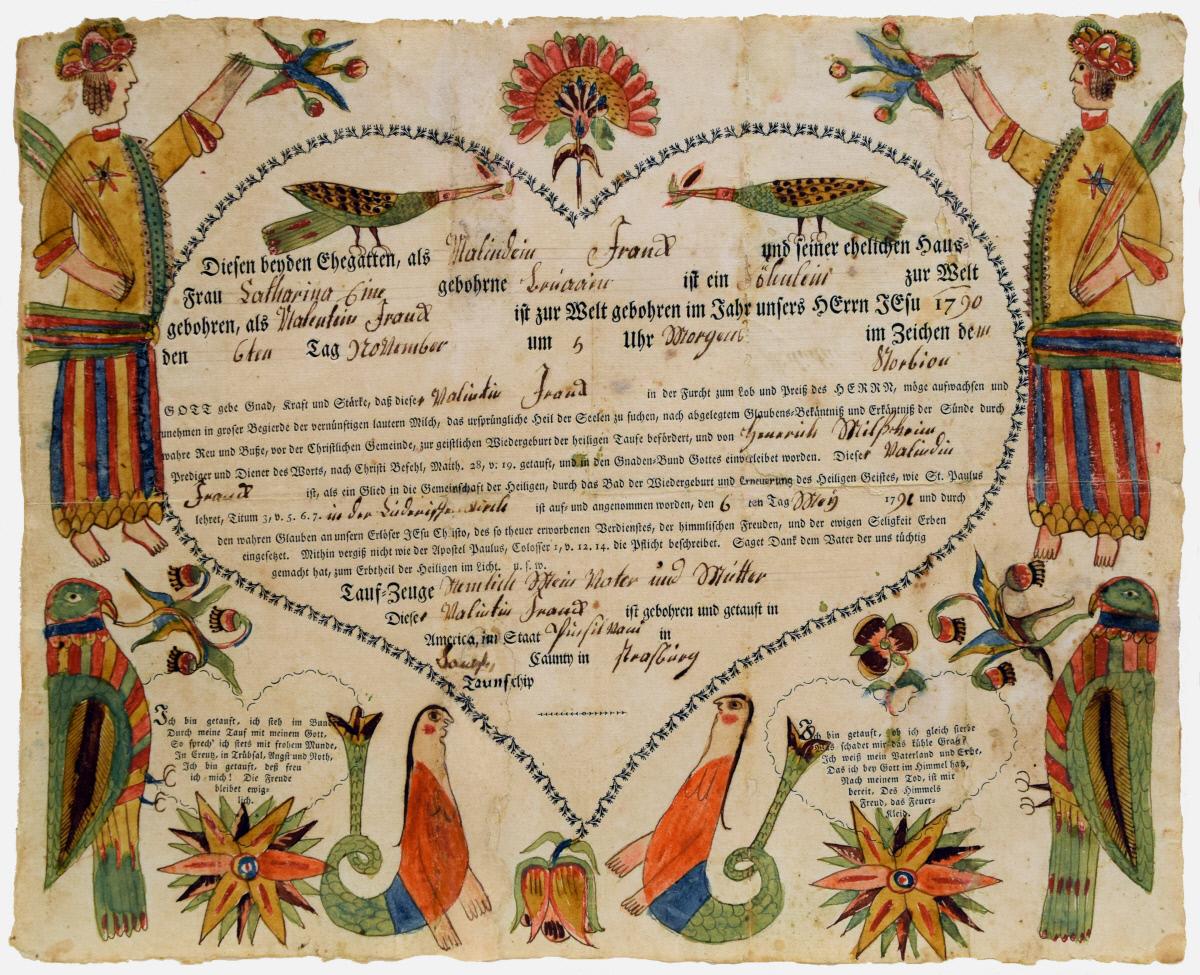 Diesen beyden Ehegatten, als Valindein Franck und seiner ehelichen Haus-
Frau Catharina Eine gebohrne ist ein Söhnlein zur Welt
gebohren, als Valentein Franck ist zur Welt gebohren im Jahr unsers HErrn JEsu 1790
den 6ten Tag November um 5 Uhr Morgens im Zeichen dem
Storbion
GOTT gebe Gnad, Kraft und Stärke, daß dieser Valintin Franck in der Furcht zum Lob und Preiß des HERRN, möge aufwachsen und
zunehmen in groser Begierde der vernünftigen lautern Milch, das ursprüngliche Heil der Seelen zu suchen, nach abgelegtem Glaubens-Bekäntniß und Erkäntniß der Sünde durch
wahre Reu und Buße, vor der Christlichen Gemeinde, zur geistlichen Wiedergeburt der heiligen Taufe befördert, und von Henerich
Prediger und Diener des Worts, nach Christi Befehl, Matth. 28, v. 19. getauft, und in den Gnaden-Bund Gottes einverleibet worden. Dieser Valindin
Franck ist, als ein Glied in die Gemeinschaft der Heiligen, durch das Bad der Wiedergeburt und Erneuerung des Heiligen Geistes, wie St. Paulus
lehret, Titum 3, v. 5. 6. 7. in der ist auf- und angenommen worden, den 6 ten Tag Mey 1791 und durch
den wahren Glauben an unsern Erlöser JEsu Christo, des so theuer erworbenen Verdienstes, der himmlischen Freuden, und der ewigen Seligkeit Erben
eingesetzt. Mithin vergiß nicht wie der Apostel Paulus, Colosser 1, v. 12. 14. die Pflicht beschreibet. Saget Dank dem Vater der uns tüchtig
gemacht hat, zum Erbtheil der Heiligen im Licht. u. s. w.
Tauf-Zeuge Nemlich Mein Vater und Mutter
Dieser Valintin Franck ist gebohren und getauft in
America, im Staat Pinsilvani in
Caunty in Strasburg
Taunschip
Ich bin getauft, ich steh im Bund
Durch meine Tauf mit meinem Gott,
So sprech' ich stets mit frohem Munde,
In Creutz, in Trübsal, Angst und Noth,
Ich bin getauft, deß freu
ich mich! Die Freude
bleibet ewig-
lich.
Ich bin getauft, ob ich gleich sterbe
Was schadet mir das kühle Grab?
Ich weiß mein Vaterland und Erbe,
Das ich bey Gott im Himmel hab,
Nach meinem Tod, ist mir
bereit. Des Himmels
Freud, das Feuer-
Kleid.